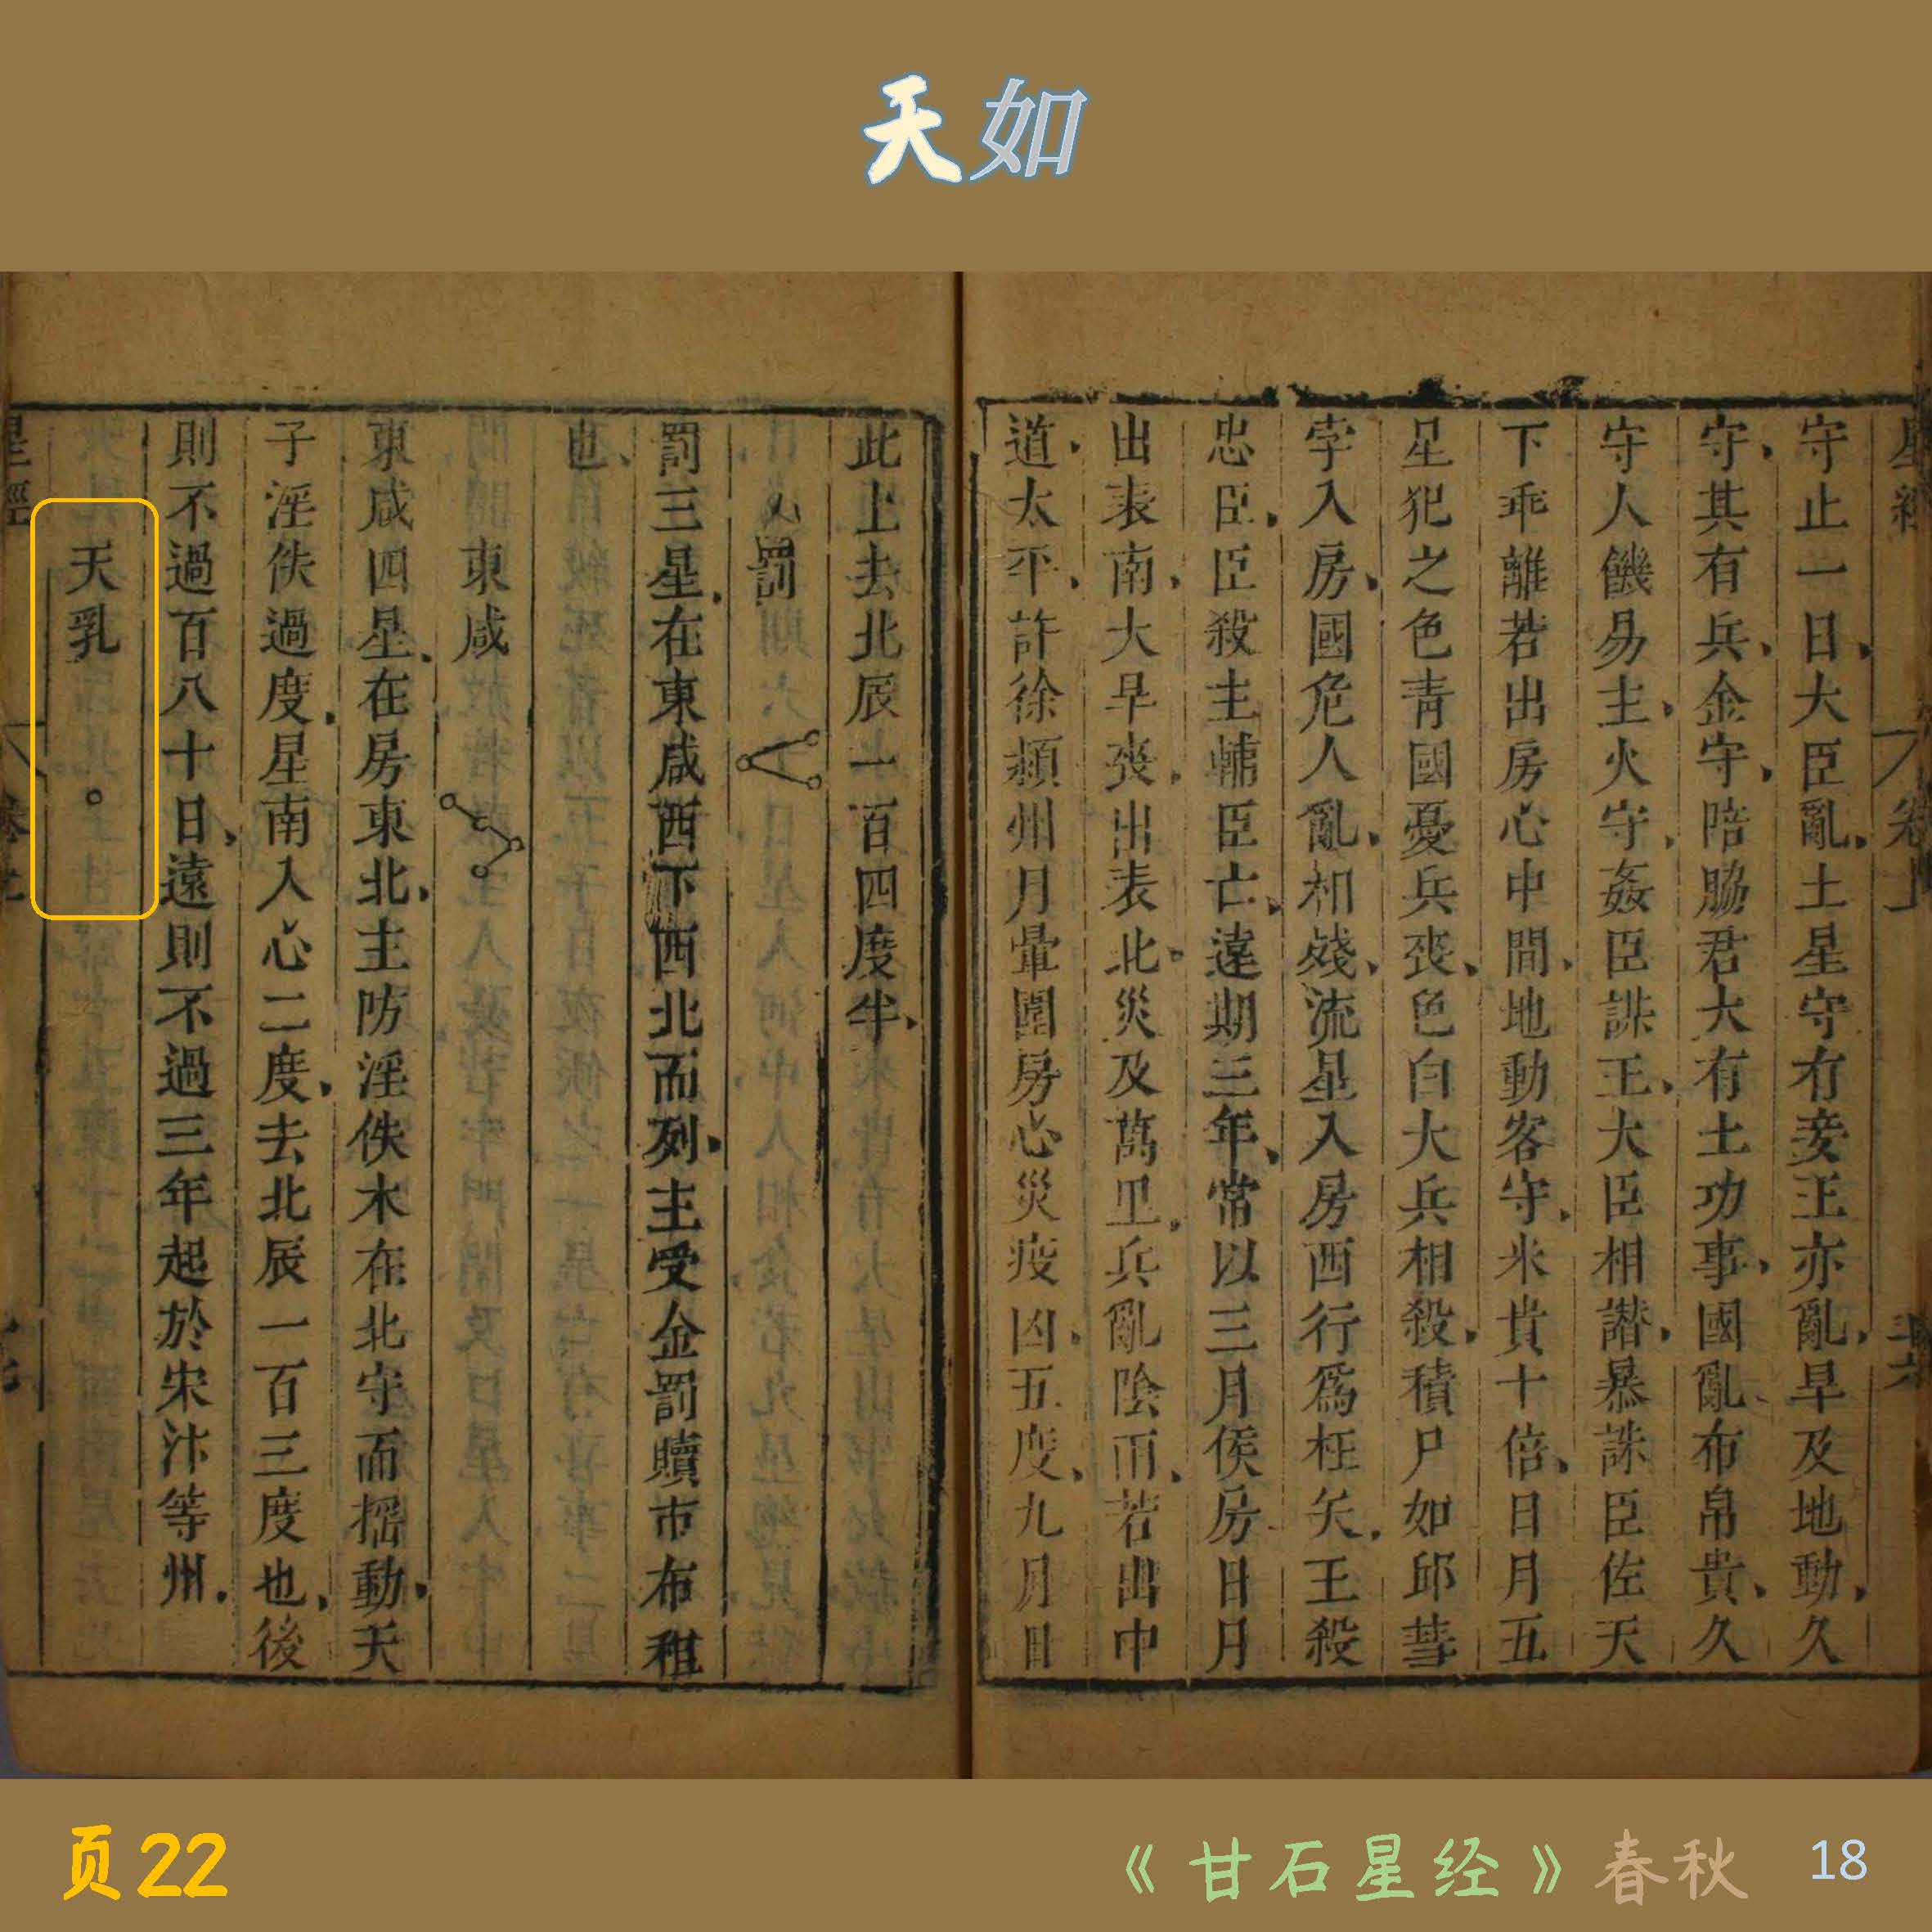 天如
星經 卷上 十六
守止一日大臣亂土星守有妾王亦亂旱及地動久
守其有兵金守陪脇君大有土功事國亂布帛貴久
守人饑易主火守姦臣誅王大臣相譖暴誅臣佐天
下乖離若出房心中間地動客守米貴十倍日月五
星犯之色青國憂兵喪色白大兵相殺積尸如邱彗
孛入房國危人亂相殘流星入房西行爲枉矢王殺
忠臣臣殺主輔臣亡遠期三年常以三月侯房日月
出表南大旱喪出表北災及萬里兵亂陰雨若出中
道太平許徐潁州月暈圍房心災疫凶五度九月日
此上去北辰一百四度半
罰
罰三星在東咸西下西北而列主受金罰贖市布租
也
東咸
東咸四星在房東北主防淫佚木在北守而搖動天
子淫佚過度星南入心二度去北辰一百三度也後
則不過百八十日遠則不過三年起於宋汴等州
天乳
星經
页22
《甘石星经》春秋 18